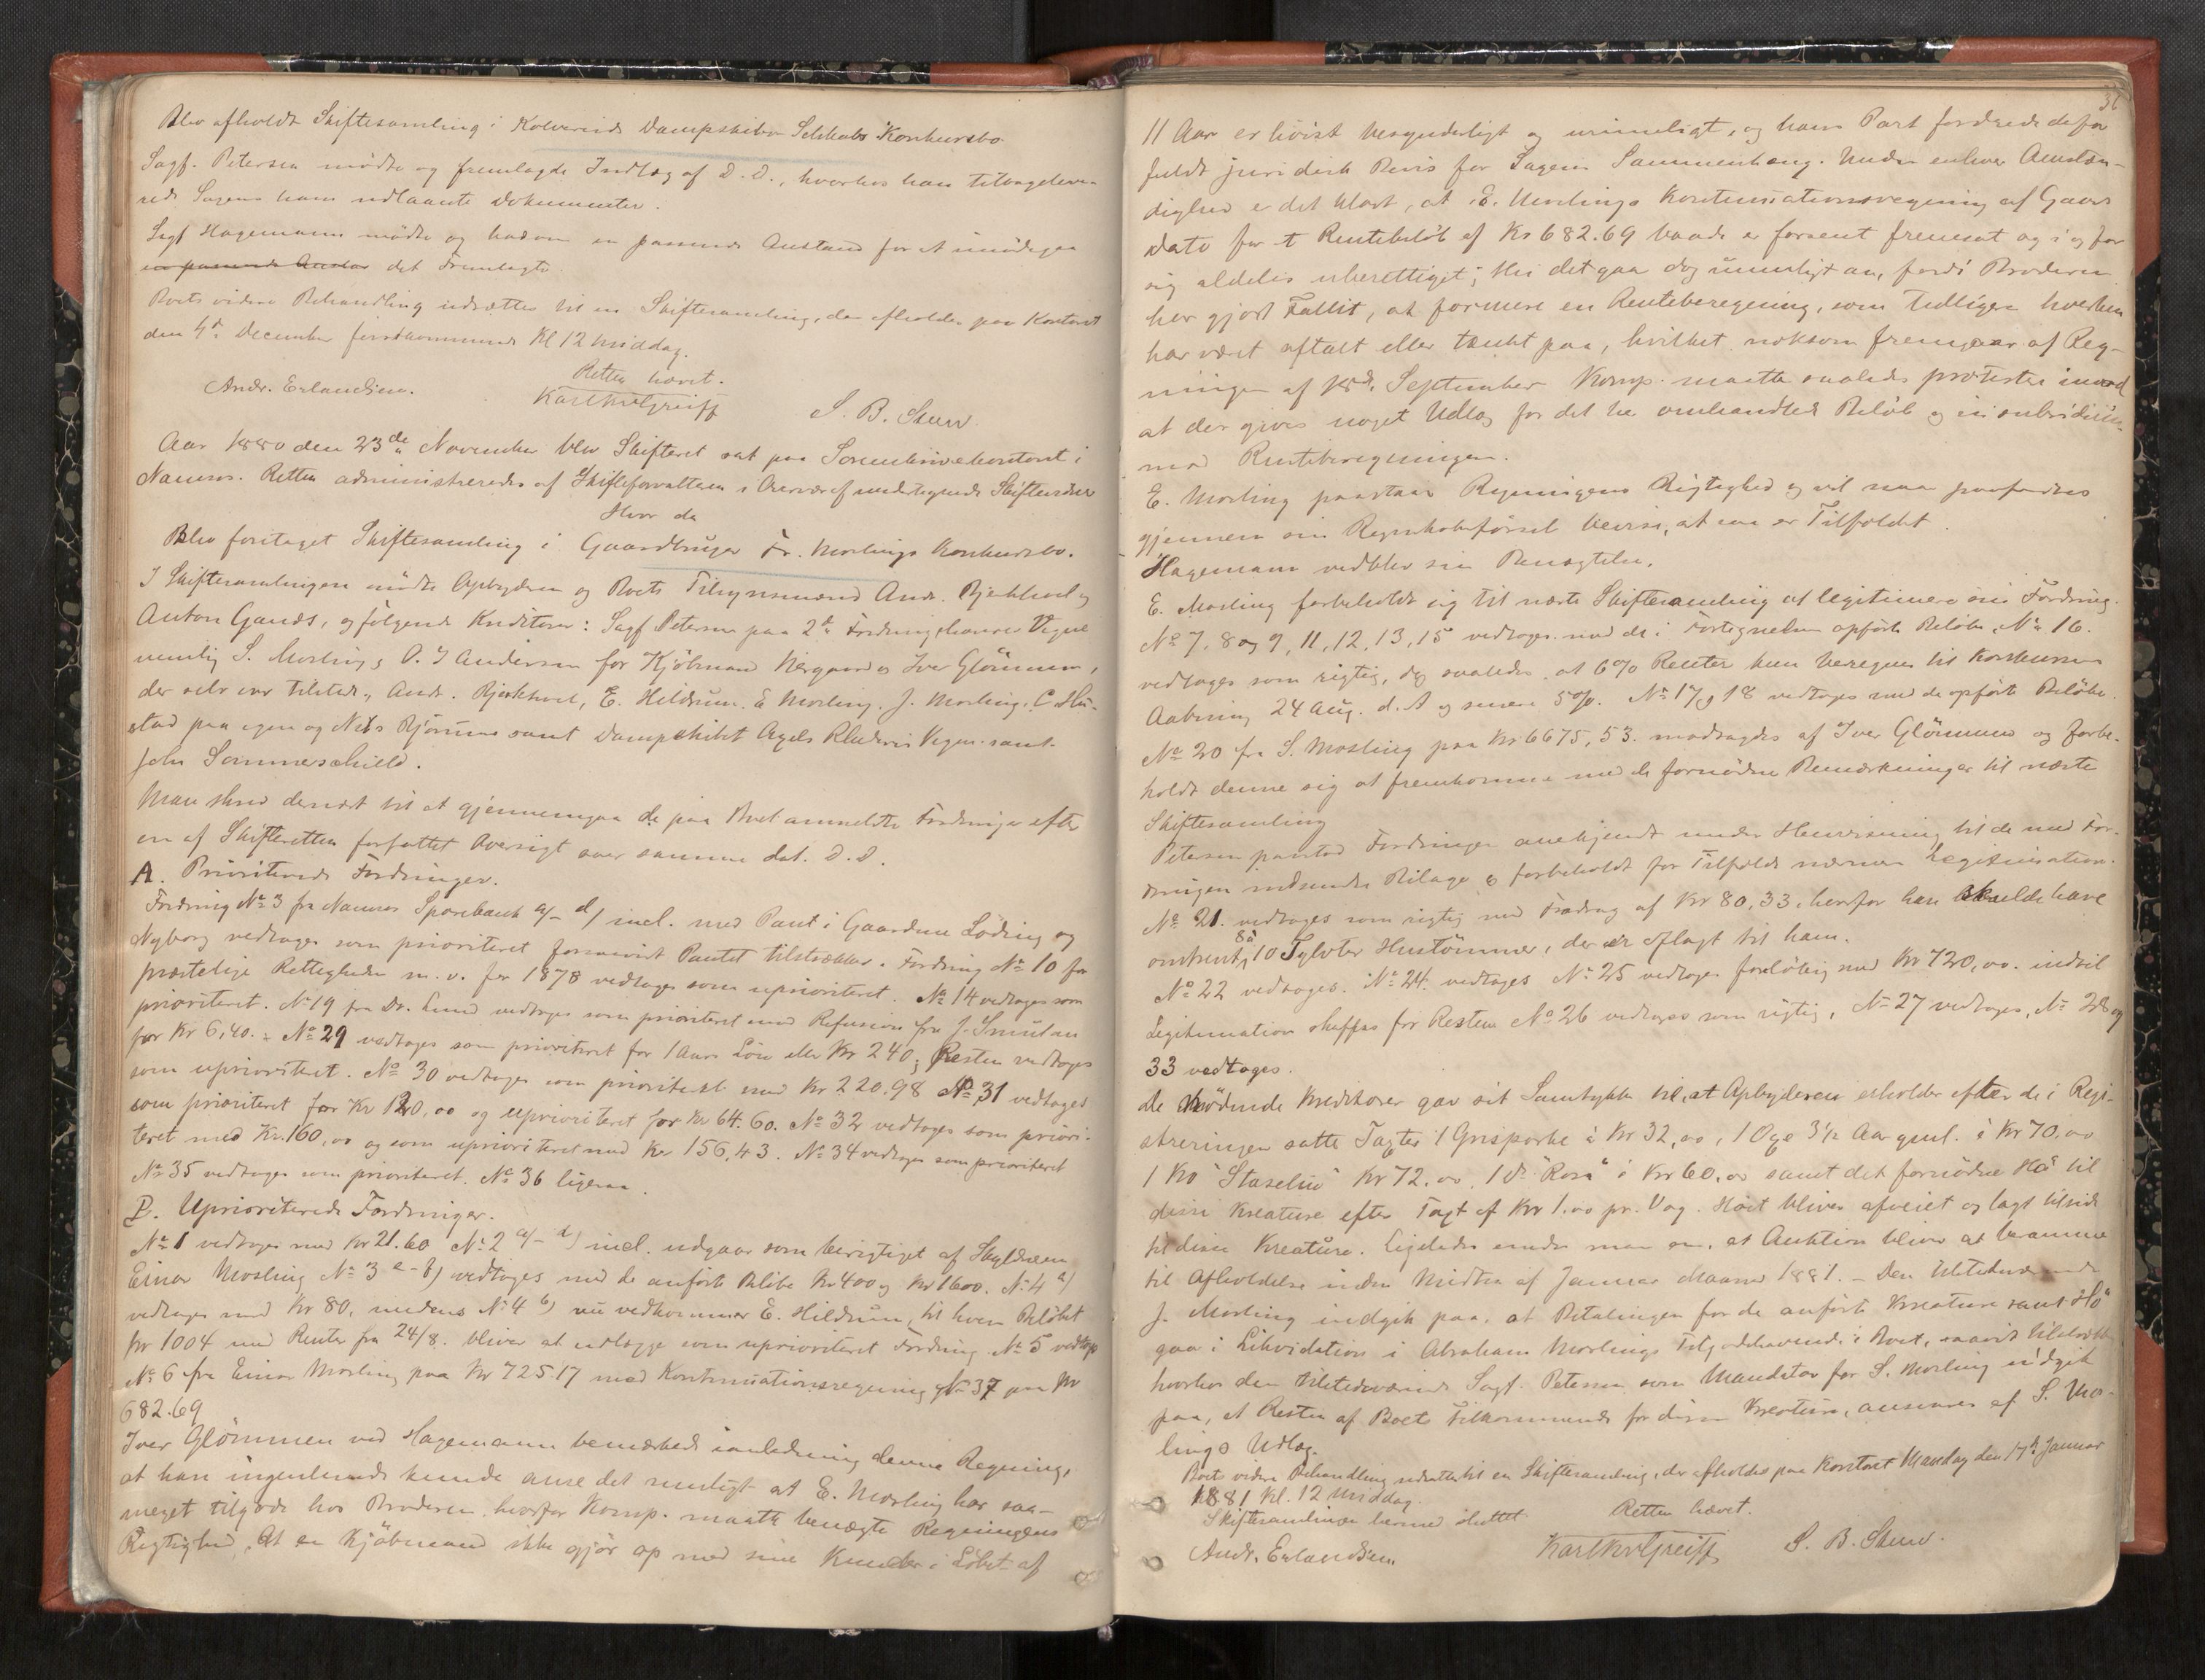 Blev afholdt Skiftesamling i Kolvereids Dampskibs Selskabs Konkursbo.
Sagf. Petersen mødte og fremlagde Indlæg af D. D., hvorhos han tilbageleve-
rede Sagens ham udlaante Dokumenter.
Sagf Hagemann mødte og bad om en passende Anstand for at imødegaa
en passende Anstan det Fremlagte.
Boets videre Behandling udsættes til en Skiftesamling, der afholdes paa Kontoret
den 4de December førstkommende Kl 12 Middag.
Retten hævet.
Andr. Erlandsen. Karl S. B. Stene
Aar 1880 den 23de November blev Skifteret sat paa Sorenskriverkontoret i
Namsos. Retten administreredes af Skifteforvalteren i Overvær af undertegnede Skiftevidner
Hvor da
Blev foretaget Skiftesamling i Gaardbruger Fr. Moslings Konkursbo.
I Skiftesamlingen mødte Opbyderen og Boets Tilsynsmænd Andr. Bjerkhoel og
Anton Gands, og følgende Kreditorer: Sagf Petersen paa 2de Fordringshaveres Vegne
nemlig S. Mosling & O. I Andersen for Kjøbmand Nergaard og Iver Glömmen,
der selv var tilstede, Andr. Bjerkhoel, E. Hildrum. E Mosling. J. Mosling. C Hu-
stad paa egen og Nils Bjørums samt Dampskibet Axels Rhederis Vegne samt
John Sommerschield.
Man skred dernæst til at gjennemgaa de paa Boet anmeldte Fordringer efter
en af Skifteretten forfattet Oversigt over samme dat. D. D.
A. Prioriterede Fordringer.
Fordring No 3 fra Namsos Sparebank a/ - d/ incl. med Pant i Gaardene Löding og
Nyborg vedtages som prioriteret forsaavidt Pantet tilstrækker. Fordring No 10 for
præstelige Rettigheder m. v. for 1878 vedtages som uprioriteret. No 14 vedtages som
prioriteret. No 19 fra Dr. Lund vedtages som prioriteret med Refusion fra J.
for Kr 6,40. No 29 vedtages som prioriteret for 1 Aars Løn eller Kr 240; Resten vedtages
som uprioriteret. No 30 vedtages som prioriteret med Kr 220.98 No 31 vedtages
som prioriteret for Kr 120,00 og uprioriteret for Kr 64.60. No 32 vedtages som priori-
teret med Kr. 160,00 og som uprioriteret med Kr 156,43. No 34 vedtages som prioriteret
No 35 vedtages som prioriteret. No 36 ligesaa.
B. Uprioriterede Fordringer.
No 1 vedtages med Kr 21.60 No 2 a/ - d/ incl. udgaar som berigtiget af Skyldneren
Einar Mosling No 3 e - f) vedtages med de anførte Beløbe Kr 400 og Kr 1600. No 4 a/
vedtages med Kr 80, medens No 4 b) nu vedkommer E. Hildrum, til hvem Beløbet
Kr 1004 med Renter fra 24/8. bliver at udlægge som uprioriteret Fordring No 5 vedtages
No 6 fra Einar Mosling paa Kr 725.17 med Kontinuationsregning No 37 paa Kr
682.69
Iver Glömmen ved Hagemann bemærkede i anledning denne Regning,
at han ingenlunde kunde anse det muligt at E. Mosling har saa-
meget tilgode hos Broderen hvorfor Komp. maatte benægte Regningens
Rigtighed. At en Kjöbmand ikke gjør op med sine Kunder i Löbet af
36
11 Aar er höist besynderligt og urimeligt, og hans Part fordrede derfor
fuldt juridisk Bevis for Sagens Sammenhæng. Under enhver Omstæn-
dighed er det klart, at E. Moslings Kontinuationsregning af Gaars
Dato for et Rentebeløb af Kr 682.69 baade er forsent fremsat og i og for
sig aldeles uberettiget; thi det gaar dog umuligt an, fordi Broderen
har gjort Fallit, at formere en Renteberegning, som tidligere hverken
har været aftalt eller tænkt paa, hvilket noksom fremgaar af Reg-
ningen af 18de September Komp. maatte saaledes protestere imod
at der gives noget Udlæg for det her omhandlede Beløb og in subsidium
mod Renteberegningen.
E. Mosling paastaar Regningens Rigtighed og vil naar paafordres
gjennem sin Regnskabsførsel bevise, at saa er Tilfældet.
Hagemann vedblev sin Benægtelse.
E. Mosling forbeholdt sig til næste Skiftesamling at legitimere sin Fordring.
No 7. 8 og 9, 11, 12, 13, 15 vedtages med de i Fortegnelsen opførte Beløbe. No 16.
vedtages som rigtig, dog saaledes at 6% Renter kun beregnes til Konkursens
Aabning 24 Aug. d. A og senere 5%. No 17 og 18 vedtages med de opførte Beløbe.
No 20 fra S. Mosling paa Kr 6675,53. modsagdes af Iver Glömmen og forbe-
holdt denne sig at fremkomme med de fornødne Bemærkninger til næste
Skiftesamling
Petersen paastod Fordringen anerkjendt under Henvisning til de med For-
dringen indsendte Bilage & forbeholdt for Tilfælde nærmere Legitimation.
No 21. vedtages som rigtig med Fradrag af Kr 80,33. herfor han skulde have
omtrent 8 à 10 Tylvter Hustömmer, der er aflagt til ham.
No 22 vedtages. No 24. vedtages No 25 vedtages foreløbig med Kr 720,00. indtil
Legitimation skaffes for Resten No 26 vedtages som rigtig, No 27 vedtages, No 28 og
33 vedtages.
De mödende Kreditorer gav sit Samtykke til, at Opbyderen erholder efter de i Regi-
streringen satte Taxter 1 Grispurke à Kr 32,00, 1 Oxe 3 1/2 Aar gml. à Kr 70,00
1 Ko "Staselin" Kr 72.00. 1 do "Rosa" à Kr 60.00 samt det fornødne Hö til
disse Kreature efter Taxt af Kr 1.00 pr. Vog. Höet bliver afveiet og lagt tilside
til disse Kreature. Ligeledes enedes man om, at Auktion bliver at beramme
til Afholdelse inden Midten af Januar Maaned 1881. - Den tilstedeværende
J. Mosling indgik paa, at Betalingen for de anførte Kreature samt Hö
gaar i Likvidation i Abraham Moslings Tilgodehavende i Boet, saavidt tilstrækker
hvorhos den tilstedeværende Sagf. Petersen som Mandatar for S. Mosling indgik
paa, at Resten af Boets Tilkommende for disse Kreature, ansvares af S. Mos-
lings Udlæg.
Boets videre Behandling udsættes til en Skiftesamling, der afholdes paa Kontoret Mandag den 17de Januar
1881 Kl. 12 Middag.
Skiftesamlingen hermed sluttet. Retten hævet.
Andr. Erlandsen. Karl S. B. Stene.